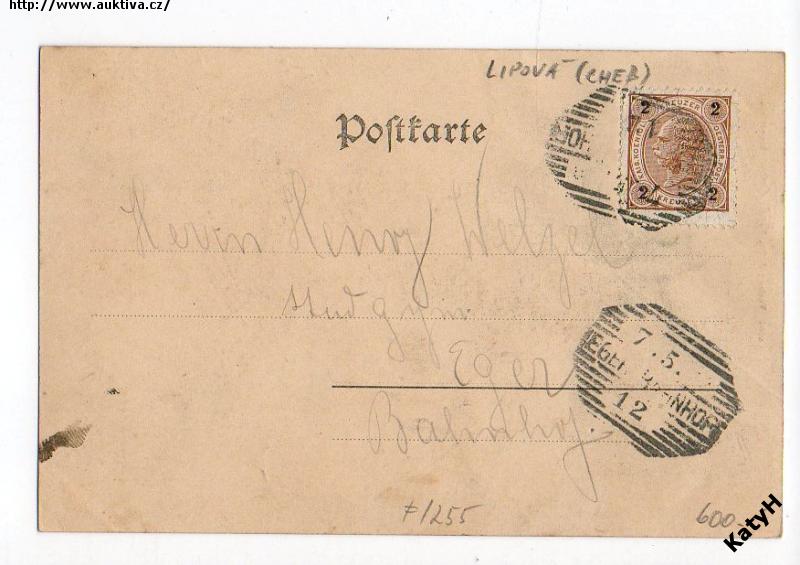 http://www.auktiva.cz/
LIPOVÁ (CHEB)
2 KREUZER 2
2 KREUZER 2
Postkarte
Herrn Henry Welzel
stud gym
Eger
Bahnhof.
7.5.
EGER BAHNHOF
12
#1255
600-
KatyH